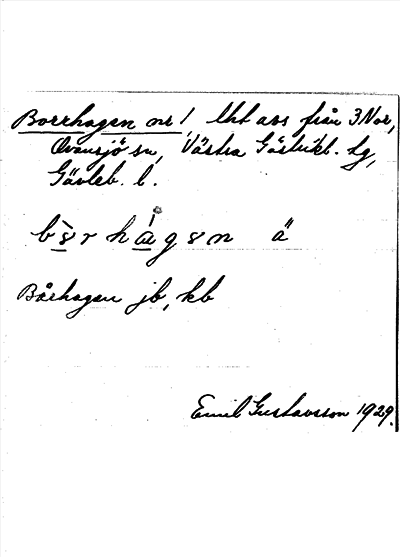 Borrhagen nr 1, lht avs från 3 Nor,
Ovansjö sn, Västra Gästrikl. tg,
Gävleb. l.
hagen ä
Bårhagen jb, kb
Emil Gustavsson 1929.